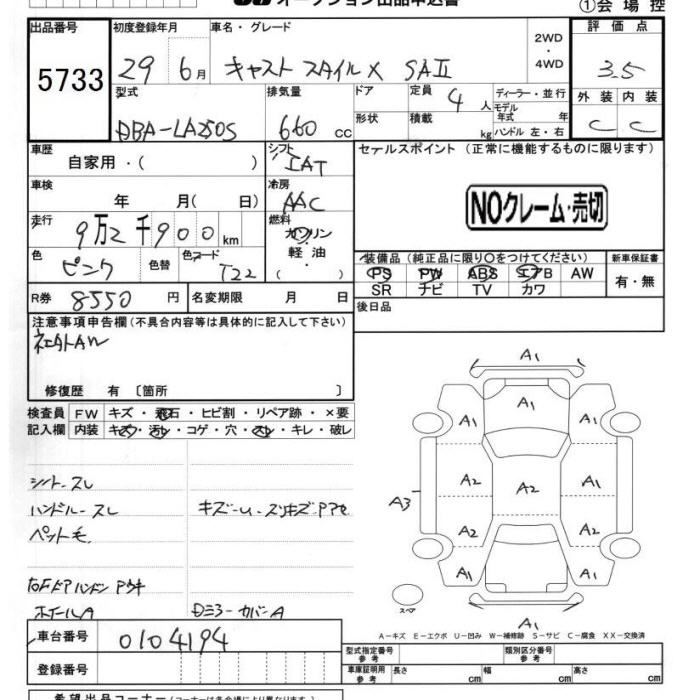 ①会場控
出品番号 初度登録年月 車名・グレード 評価点
5733 29 6月 キャスト スタイルX SAⅡ 2WD・4WD 3.5
型式 排気量 ドア 定員 4人 ディーラー・並行 外装 内装
モデル年式 年
DBA-LA250S 660cc 形状 積載 kg ハンドル 左・右 C C
車歴 自家用・( ) シフト IAT セールスポイント(正常に機能するものに限ります)
車検 年 月( 日) 冷房 AAC
NOクレーム・売切
走行 9万2千900km 燃料 ガソリン
軽油
( )
色 ピンク 色替 色コード T22
装備品(純正品に限り○をつけてください) 新車保証書
PS PW ABS エアB AW 有・無
SR ナビ TV カワ
R券 8550円 名変期限 月 日 後日品
注意事項申告欄(不具合内容等は具体的に記入して下さい)
社外AW
修復歴 有 〔箇所 〕
検査員 FW キズ・飛石・ヒビ割・リペア跡・×要
記入欄 内装 キズ・汚レ・コゲ・穴・スレ・キレ・破レ
シート スレ
ハンドル-スレ
ペット毛
ホイールA
Dミラー カバーA
A1
A1
A1 A1
A2 A1
A3 A2
A2 A2
A1 A1
スペア
A1
A-キズ E-エクボ U-凹み W-補修跡 S-サビ C-腐食 XX-交換済
車台番号 0104194
型式指定番号 参考 類別区分番号 参考
登録番号
車庫証明用 参考 長さ cm 幅 cm 高さ cm
希望出品コーナー